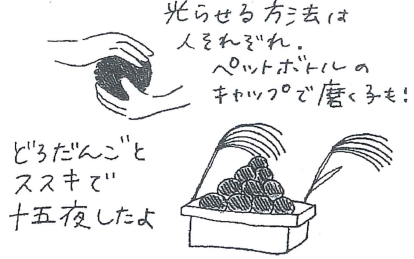 光らせる方法は
人それぞれ。
ペットボトルの
キャップで磨く子も!
どろだんごと
ススキで
十五夜したよ